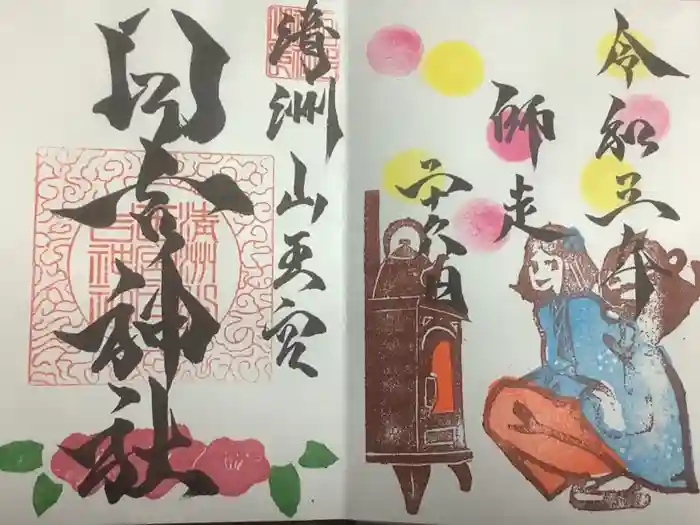 令和三年
師走
清洲山王宮
日吉神社
清洲山
王宮日
吉神社